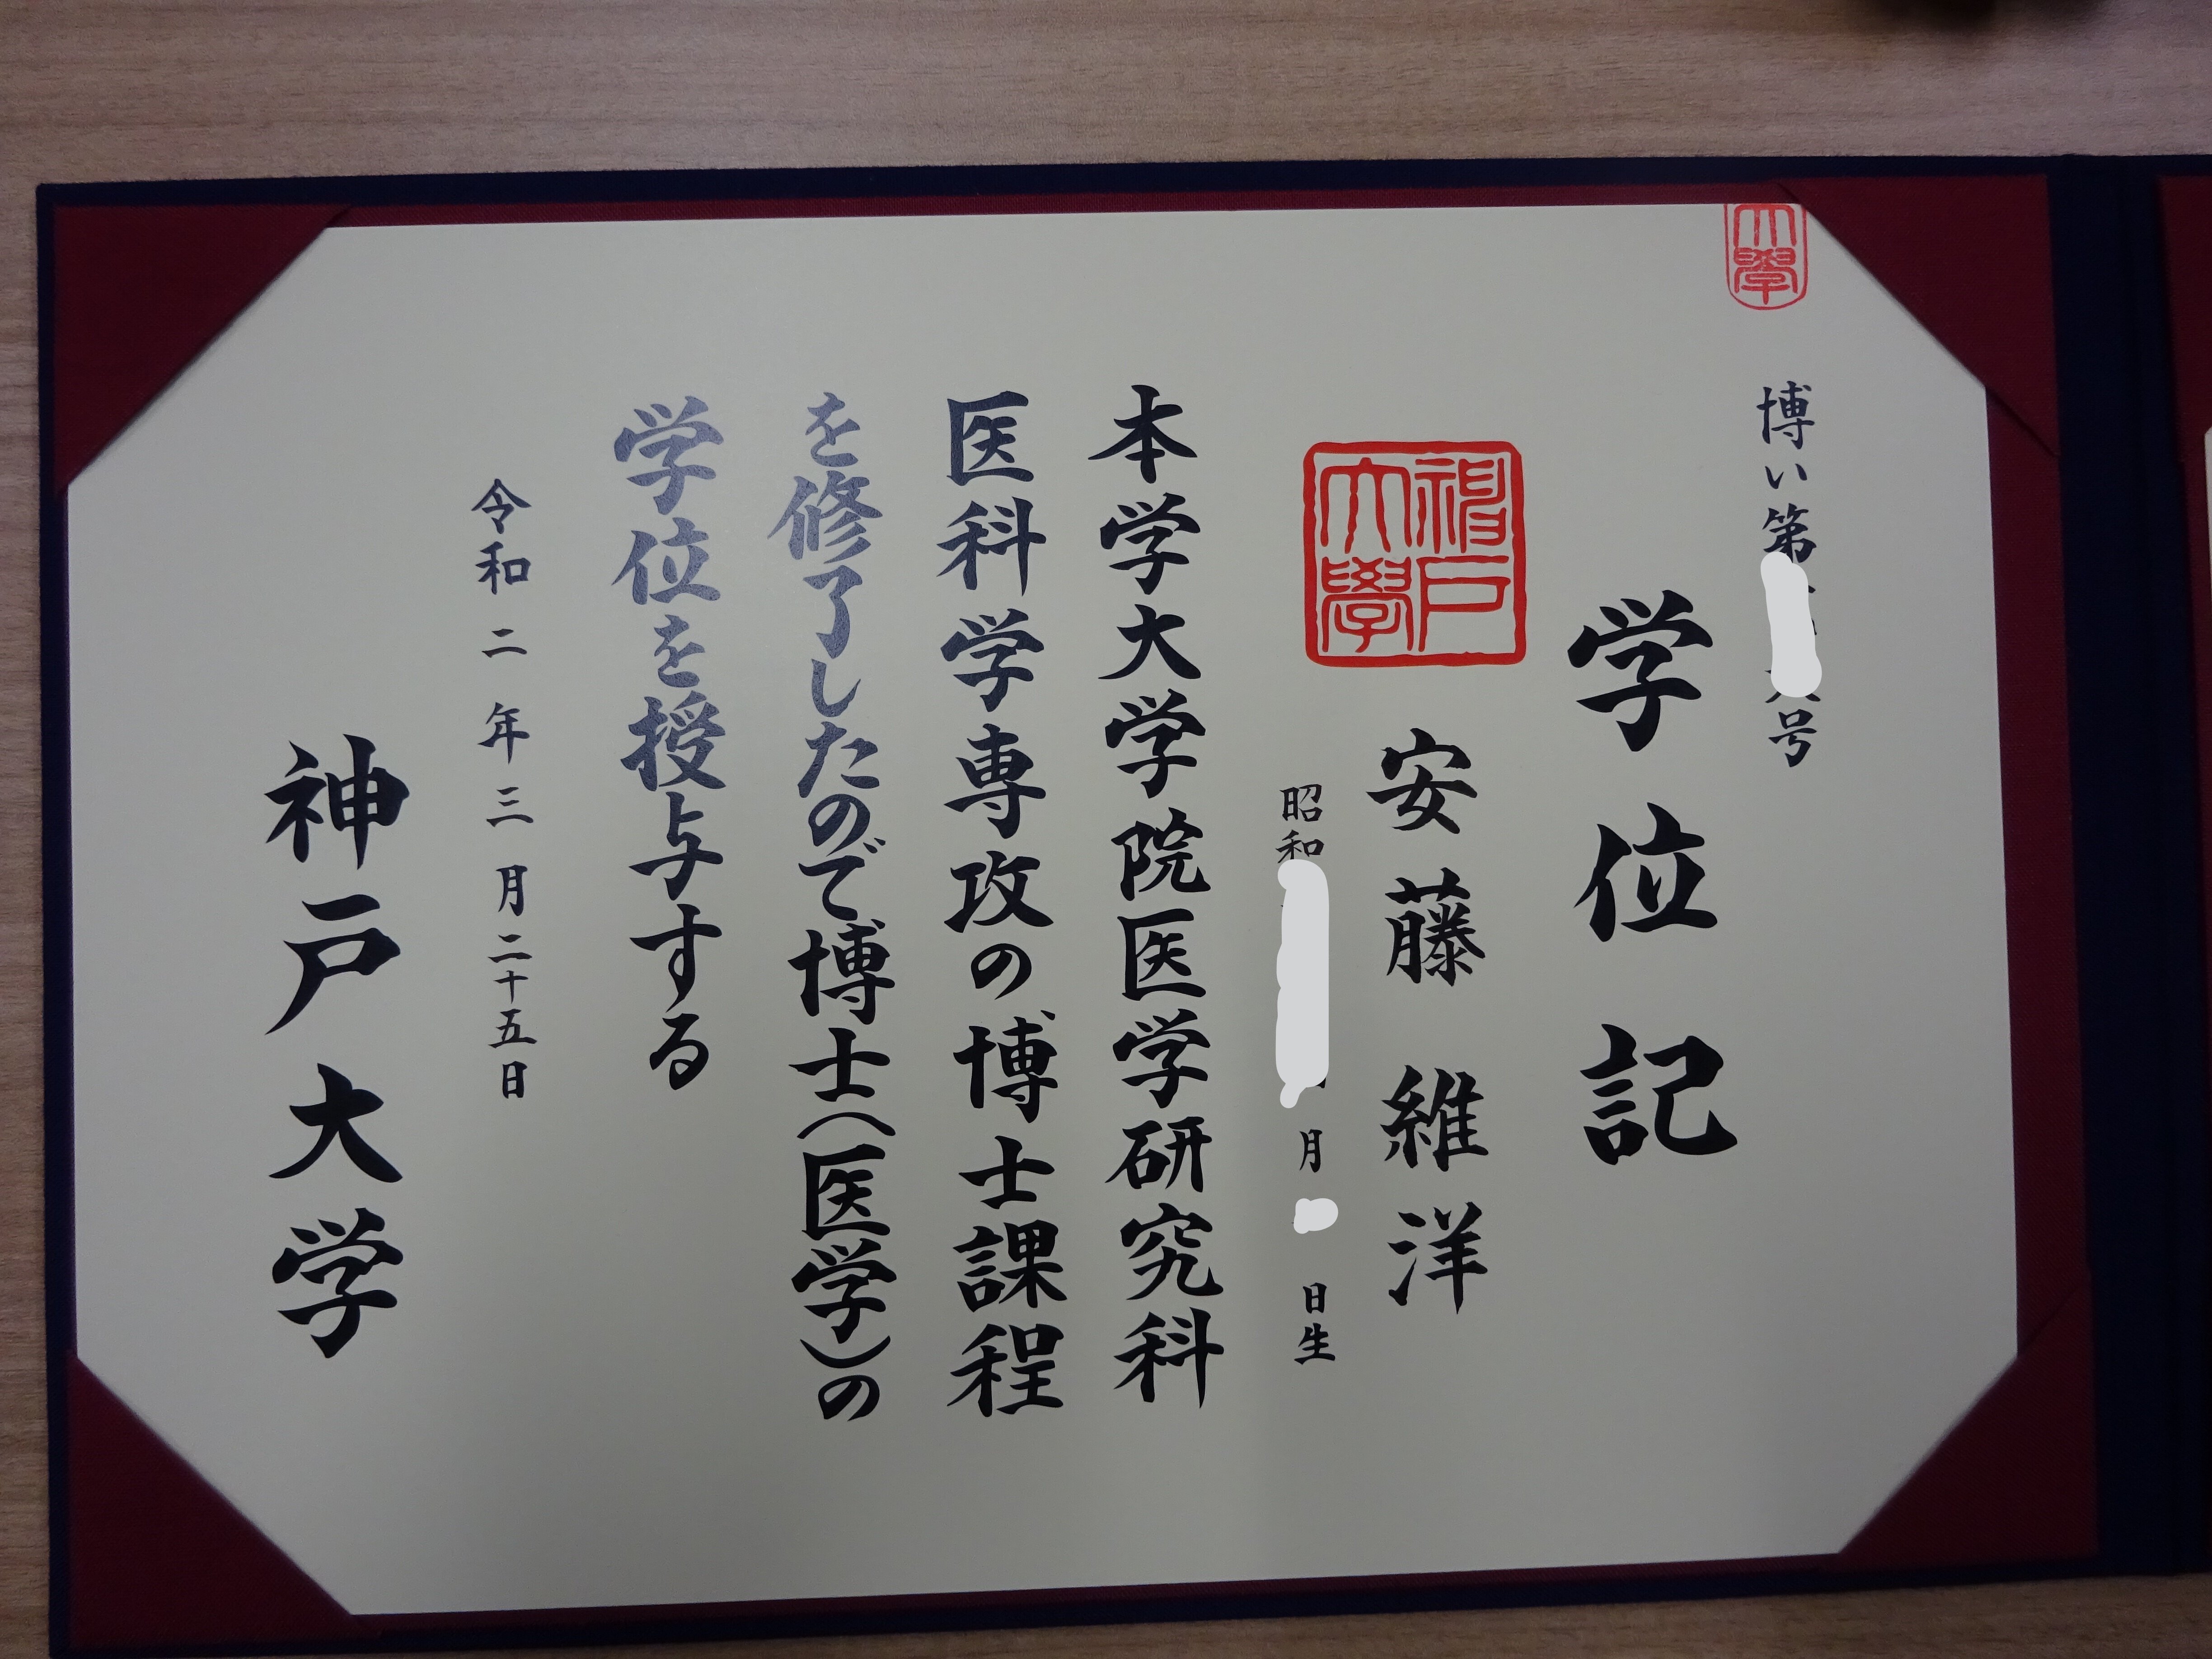 博い第号
学位記
神戸大學
安藤維洋
昭和 月 日生
本学大学院医学研究科
医科学専攻の博士課程
を修了したので博士(医学)の
学位を授与する
令和二年三月二十五日
神戸大学
大學